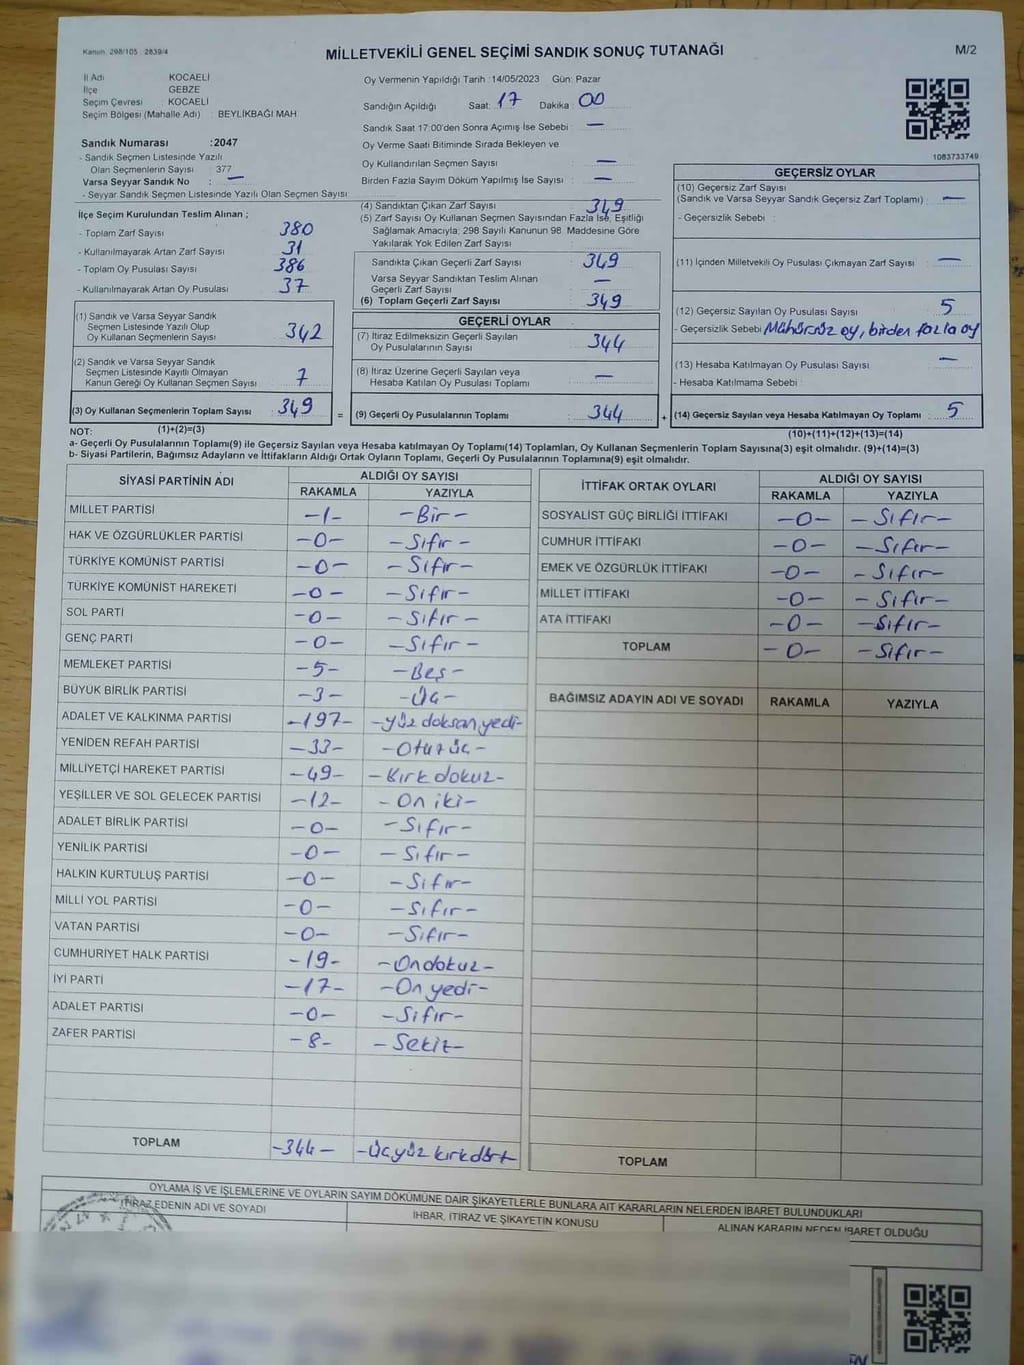 Kanun: 298/105 : 2839/4
MİLLETVEKİLİ GENEL SEÇİMİ SANDIK SONUÇ TUTANAĞI
M/2
İl Adı : KOCAELİ
İlçe : GEBZE
Seçim Çevresi : KOCAELİ
Seçim Bölgesi (Mahalle Adı) : BEYLİKBAĞI MAH
Sandık Numarası :2047
- Sandık Seçmen Listesinde Yazılı
Olan Seçmenlerin Sayısı : 377
Varsa Seyyar Sandık No : —
- Seyyar Sandık Seçmen Listesinde Yazılı Olan Seçmen Sayısı:
İlçe Seçim Kurulundan Teslim Alınan ;
- Toplam Zarf Sayısı : 380
- Kullanılmayarak Artan Zarf Sayısı : 31
- Toplam Oy Pusulası Sayısı : 386
- Kullanılmayarak Artan Oy Pusulası : 37
(1) Sandık ve Varsa Seyyar Sandık
Seçmen Listesinde Yazılı Olup
Oy Kullanan Seçmenlerin Sayısı : 342
(2) Sandık ve Varsa Seyyar Sandık
Seçmen Listesinde Kayıtlı Olmayan
Kanun Gereği Oy Kullanan Seçmen Sayısı : 7
(3) Oy Kullanan Seçmenlerin Toplam Sayısı : 349
(1)+(2)=(3)
Oy Vermenin Yapıldığı Tarih :14/05/2023 Gün: Pazar
Sandığın Açıldığı Saat: 17 Dakika : 00
Sandık Saat 17:00'den Sonra Açımış İse Sebebi : —
Oy Verme Saati Bitiminde Sırada Bekleyen ve
Oy Kullandırılan Seçmen Sayısı : —
Birden Fazla Sayım Döküm Yapılmış İse Sayısı : —
(4) Sandıktan Çıkan Zarf Sayısı : 349
(5) Zarf Sayısı Oy Kullanan Seçmen Sayısından Fazla İse, Eşitliği
Sağlamak Amacıyla; 298 Sayılı Kanunun 98. Maddesine Göre
Yakılarak Yok Edilen Zarf Sayısı :
Sandıkta Çıkan Geçerli Zarf Sayısı : 349
Varsa Seyyar Sandıktan Teslim Alınan
Geçerli Zarf Sayısı : —
(6) Toplam Geçerli Zarf Sayısı : 349
GEÇERLİ OYLAR
(7) İtiraz Edilmeksizin Geçerli Sayılan
Oy Pusulalarının Sayısı : 344
(8) İtiraz Üzerine Geçerli Sayılan veya
Hesaba Katılan Oy Pusulası Toplamı : —
= (9) Geçerli Oy Pusulalarının Toplamı : 344
1083733749
GEÇERSİZ OYLAR
(10) Geçersiz Zarf Sayısı
(Sandık ve Varsa Seyyar Sandık Geçersiz Zarf Toplamı) : —
- Geçersizlik Sebebi :
(11) İçinden Milletvekili Oy Pusulası Çıkmayan Zarf Sayısı : —
(12) Geçersiz Sayılan Oy Pusulası Sayısı : 5
- Geçersizlik Sebebi : Mühürsüz oy, birden fazla oy
(13) Hesaba Katılmayan Oy Pusulası Sayısı : —
- Hesaba Katılmama Sebebi :
+ (14) Geçersiz Sayılan veya Hesaba Katılmayan Oy Toplamı : 5
(10)+(11)+(12)+(13)=(14)
NOT:
a- Geçerli Oy Pusulalarının Toplamı(9) ile Geçersiz Sayılan veya Hesaba katılmayan Oy Toplamı(14) Toplamları, Oy Kullanan Seçmenlerin Toplam Sayısına(3) eşit olmalıdır. (9)+(14)=(3)
b- Siyasi Partilerin, Bağımsız Adayların ve İttifakların Aldığı Ortak Oyların Toplamı, Geçerli Oy Pusulalarının Toplamına(9) eşit olmalıdır.
SİYASİ PARTİNİN ADI ALDIĞI OY SAYISI
RAKAMLA YAZIYLA
MİLLET PARTİSİ -1- -Bir-
HAK VE ÖZGÜRLÜKLER PARTİSİ -0- -Sıfır-
TÜRKİYE KOMÜNİST PARTİSİ -0- -Sıfır-
TÜRKİYE KOMÜNİST HAREKETİ -0- -Sıfır-
SOL PARTİ -0- -Sıfır-
GENÇ PARTİ -0- -Sıfır-
MEMLEKET PARTİSİ -5- -Beş-
BÜYÜK BİRLİK PARTİSİ -3- -Üç-
ADALET VE KALKINMA PARTİSİ -197- -yüz doksan yedi-
YENİDEN REFAH PARTİSİ -33- -Otuz üç-
MİLLİYETÇİ HAREKET PARTİSİ -49- -Kırk dokuz-
YEŞİLLER VE SOL GELECEK PARTİSİ -12- -On iki-
ADALET BİRLİK PARTİSİ -0- -Sıfır-
YENİLİK PARTİSİ -0- -Sıfır-
HALKIN KURTULUŞ PARTİSİ -0- -Sıfır-
MİLLİ YOL PARTİSİ -0- -Sıfır-
VATAN PARTİSİ -0- -Sıfır-
CUMHURİYET HALK PARTİSİ -19- -On dokuz-
İYİ PARTİ -17- -On yedi-
ADALET PARTİSİ -0- -Sıfır-
ZAFER PARTİSİ -8- -Sekiz-
TOPLAM -344- -üçyüz kırk dört
İTTİFAK ORTAK OYLARI ALDIĞI OY SAYISI
RAKAMLA YAZIYLA
SOSYALİST GÜÇ BİRLİĞİ İTTİFAKI -0- -Sıfır-
CUMHUR İTTİFAKI -0- -Sıfır-
EMEK VE ÖZGÜRLÜK İTTİFAKI -0- -Sıfır-
MİLLET İTTİFAKI -0- -Sıfır-
ATA İTTİFAKI -0- -Sıfır-
TOPLAM -0- -Sıfır-
BAĞIMSIZ ADAYIN ADI VE SOYADI RAKAMLA YAZIYLA
TOPLAM
OYLAMA İŞ VE İŞLEMLERİNE VE OYLARIN SAYIM DÖKÜMÜNE DAİR ŞİKAYETLERLE BUNLARA AİT KARARLARIN NELERDEN İBARET BULUNDUKLARI
İTİRAZ EDENİN ADI VE SOYADI
İHBAR, İTİRAZ VE ŞİKAYETİN KONUSU
ALINAN KARARIN NEDEN İBARET OLDUĞU